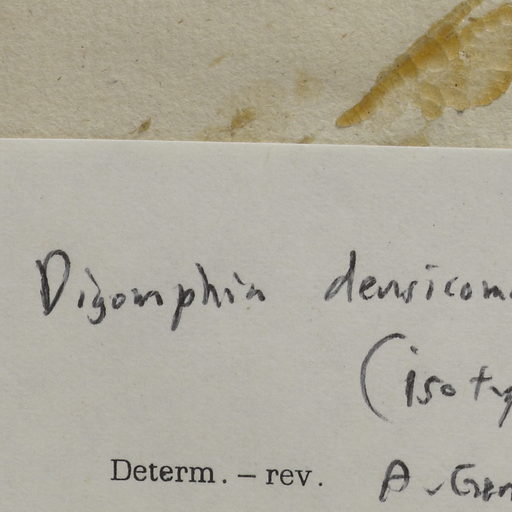 Digomphia densicoma
(isoty
Determ. – rev. A. Gen